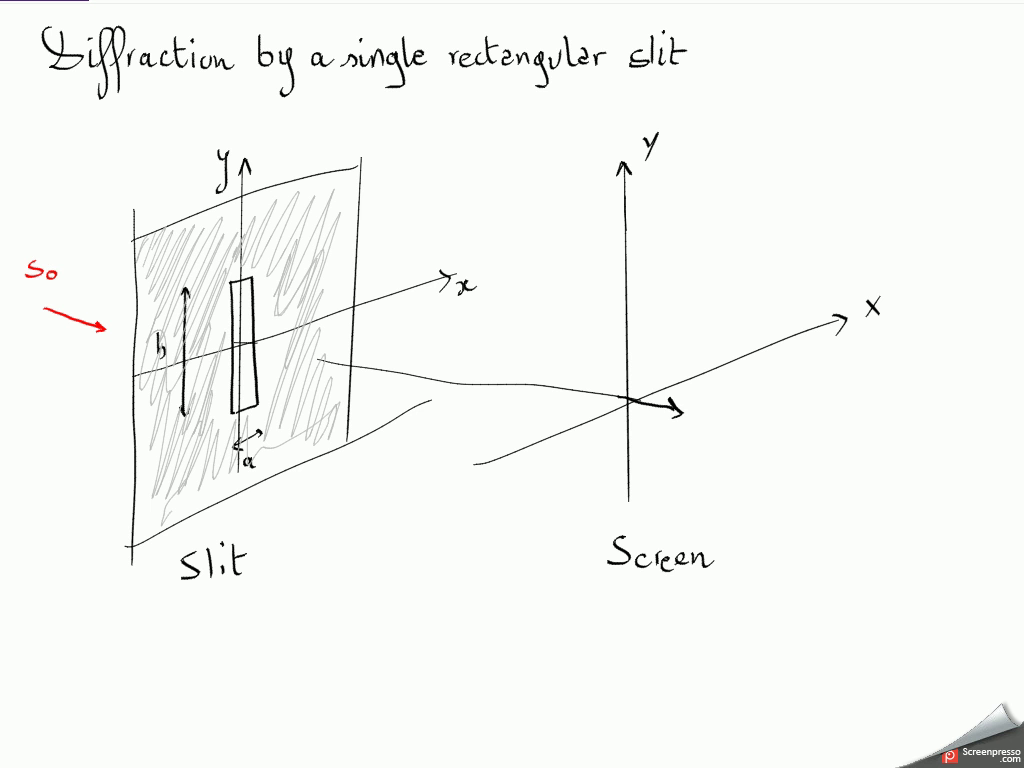 Diffraction by a single rectangular slit
y
Y
So
x
X
b
a
Slit
Screen
Screenpresso
.com